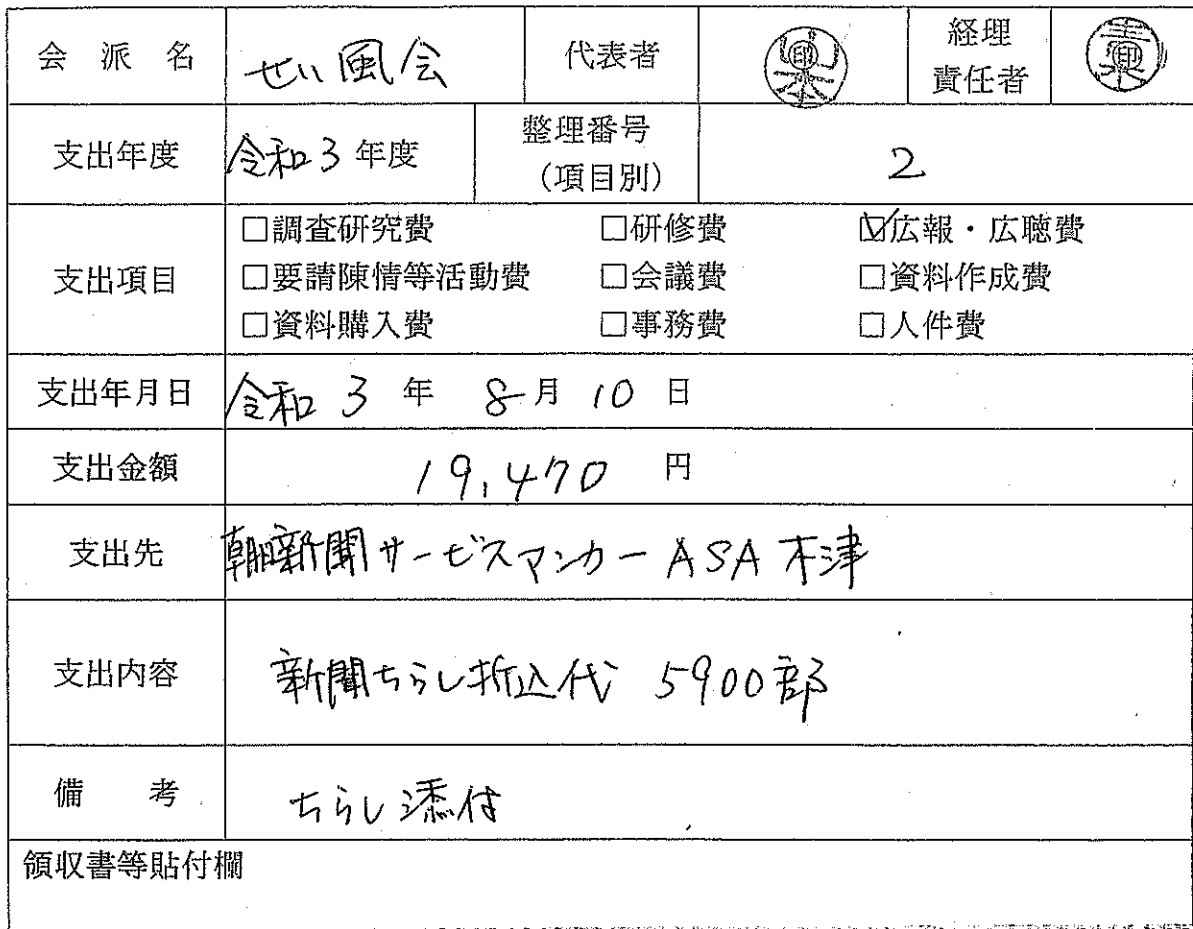 会派名 せい風会 代表者 経理
責任者
支出年度 令和3年度 整理番号
(項目別) 2
支出項目 □調査研究費 □研修費 ☑広報・広聴費
□要請陳情等活動費 □会議費 □資料作成費
□資料購入費 □事務費 □人件費
支出年月日 令和3年8月10日
支出金額 19,470円
支出先 朝日新聞サービスアンカーASA木津
支出内容 新聞ちらし折込代 5900部
備考 ちらし添付
領収書等貼付欄